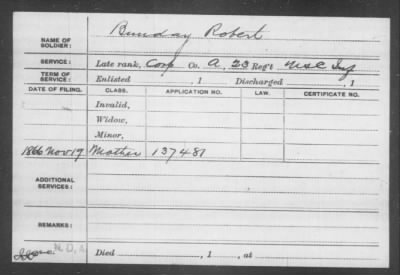 NAME OF SOLDIER: Bunday Robert
SERVICE: Late rank, Corp Co. A, 23 Reg't Inf
TERM OF SERVICE: Enlisted , 1 Discharged , 1
DATE OF FILING. CLASS. APPLICATION NO. LAW. CERTIFICATE NO.
Invalid,
Widow,
Minor,
1866 Nov 19 Mother 137481
ADDITIONAL SERVICES:
REMARKS:
N.D.
Died , 1 , at